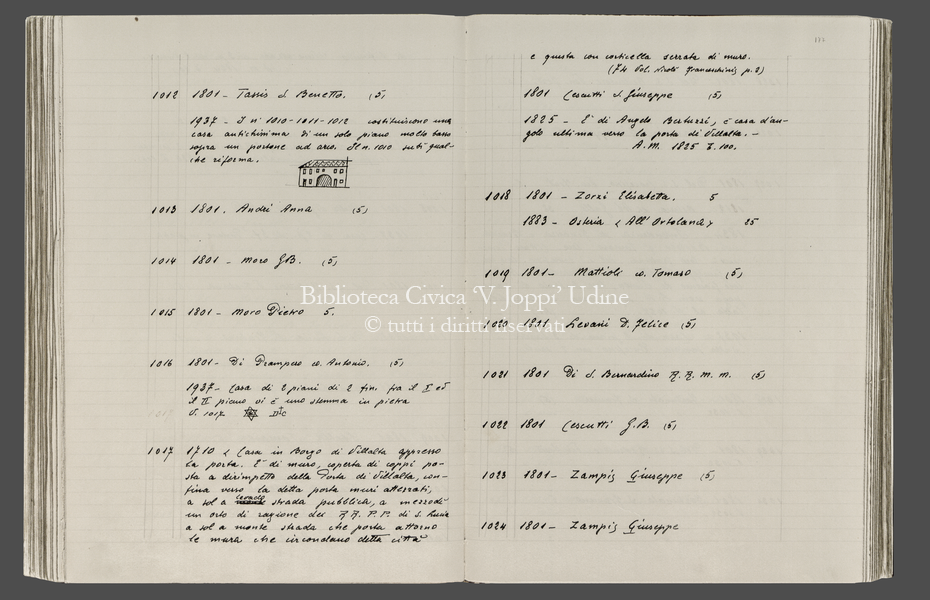 1012 1801 - Tassis d. Benetto. (5)
1937 - I nⁱ 1010-1011-1012 costituiscono una
casa antichissima di un solo piano molto basso
sopra un portone ad arco. Il n. 1010 subì qual-
che riforma.
1013 1801. Andri Anna (5)
1014 1801 - Moro G.B. (5)
1015 1801 - Moro Pietro 5.
1016 1801 - Di Prampero co. Antonio. (5)
1937 - Casa di 2 piani di 2 fin. fra il I ed
il II piano vi è uno stemma in pietra
V. 1017
1017 1710 « Casa in Borgo di Villalta appresso
la porta. E' di muro, coperta di coppi po-
sta a dirimpetto della Porta di Villalta, con-
fina verso la detta porta muri atterrati,
a sol a levado strada pubblica, a mezzodì
un orto di ragione del R.R. P.P. di S. Lucia
a sol a monte strada che porta attorno
le mura che circondano detta città
e questa con corticella serrata di muro.
(74 Vol. Nicolò Franceschinis p. 2)
1801 Cescutti d. Giuseppe (5)
1825 - E' di Angelo Bertuzzi, è casa d'an-
golo ultima verso la porta di Villalta. -
A.M. 1825 F. 100.
1018 1801 - Zorzi Elisabetta. 5
1883 - Osteria « All' Ortolana » 25
1019 1801 - Mattioli co. Tomaso (5)
Biblioteca Civica 'V. Joppi' Udine
© tutti i diritti riservati
1020 1801 D. Felice (5)
1021 1801 Di S. Bernardino R.R. M.M. (5)
1022 1801 Cescutti G.B. (5)
1023 1801 - Zampis Giuseppe (5)
1024 1801 - Zampis Giuseppe